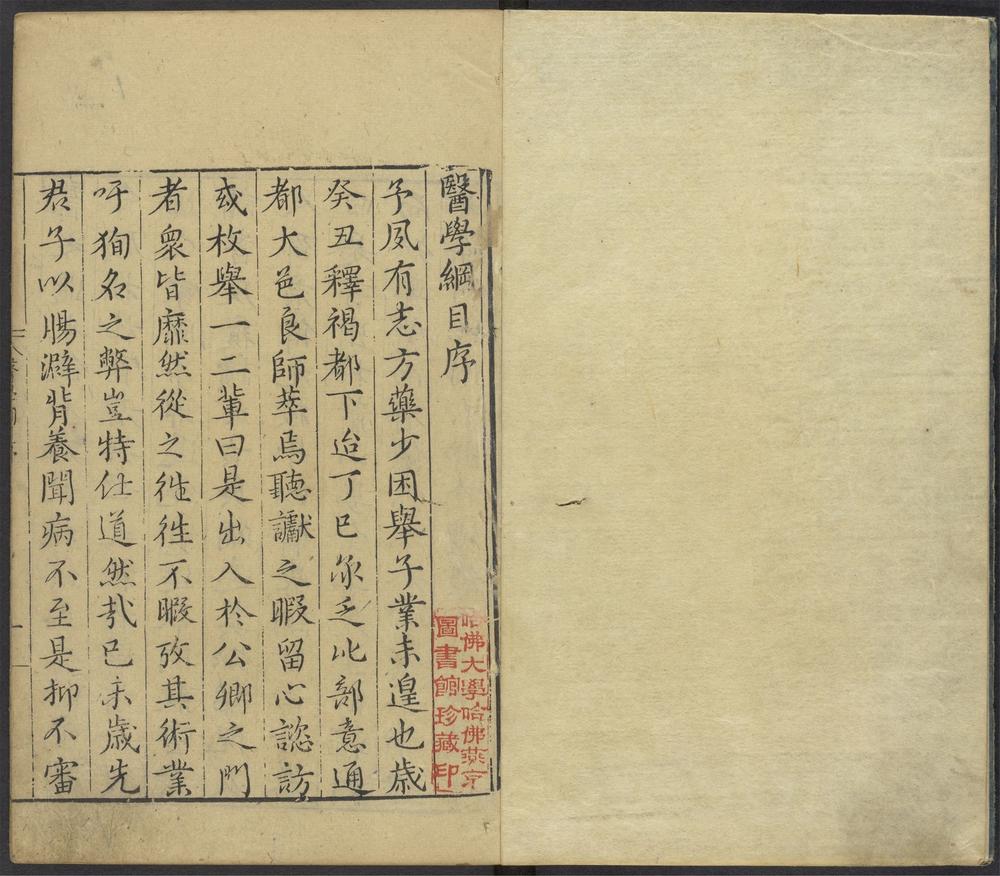 醫學綱目序
予夙有志方藥少困舉子業未遑也歲
癸丑釋褐都下迨丁巳承乏比部意通
都大邑良師萃焉聽讞之暇留心諮訪
或枚舉一二輩曰是出入於公卿之門
者衆皆靡然從之徃徃不暇攷其術業
吁狥名之弊豈特仕道然㢤己未歲先
君子以腸澼背養聞病不至是抑不審
哈佛大學哈佛燕京
圖書館珍藏印